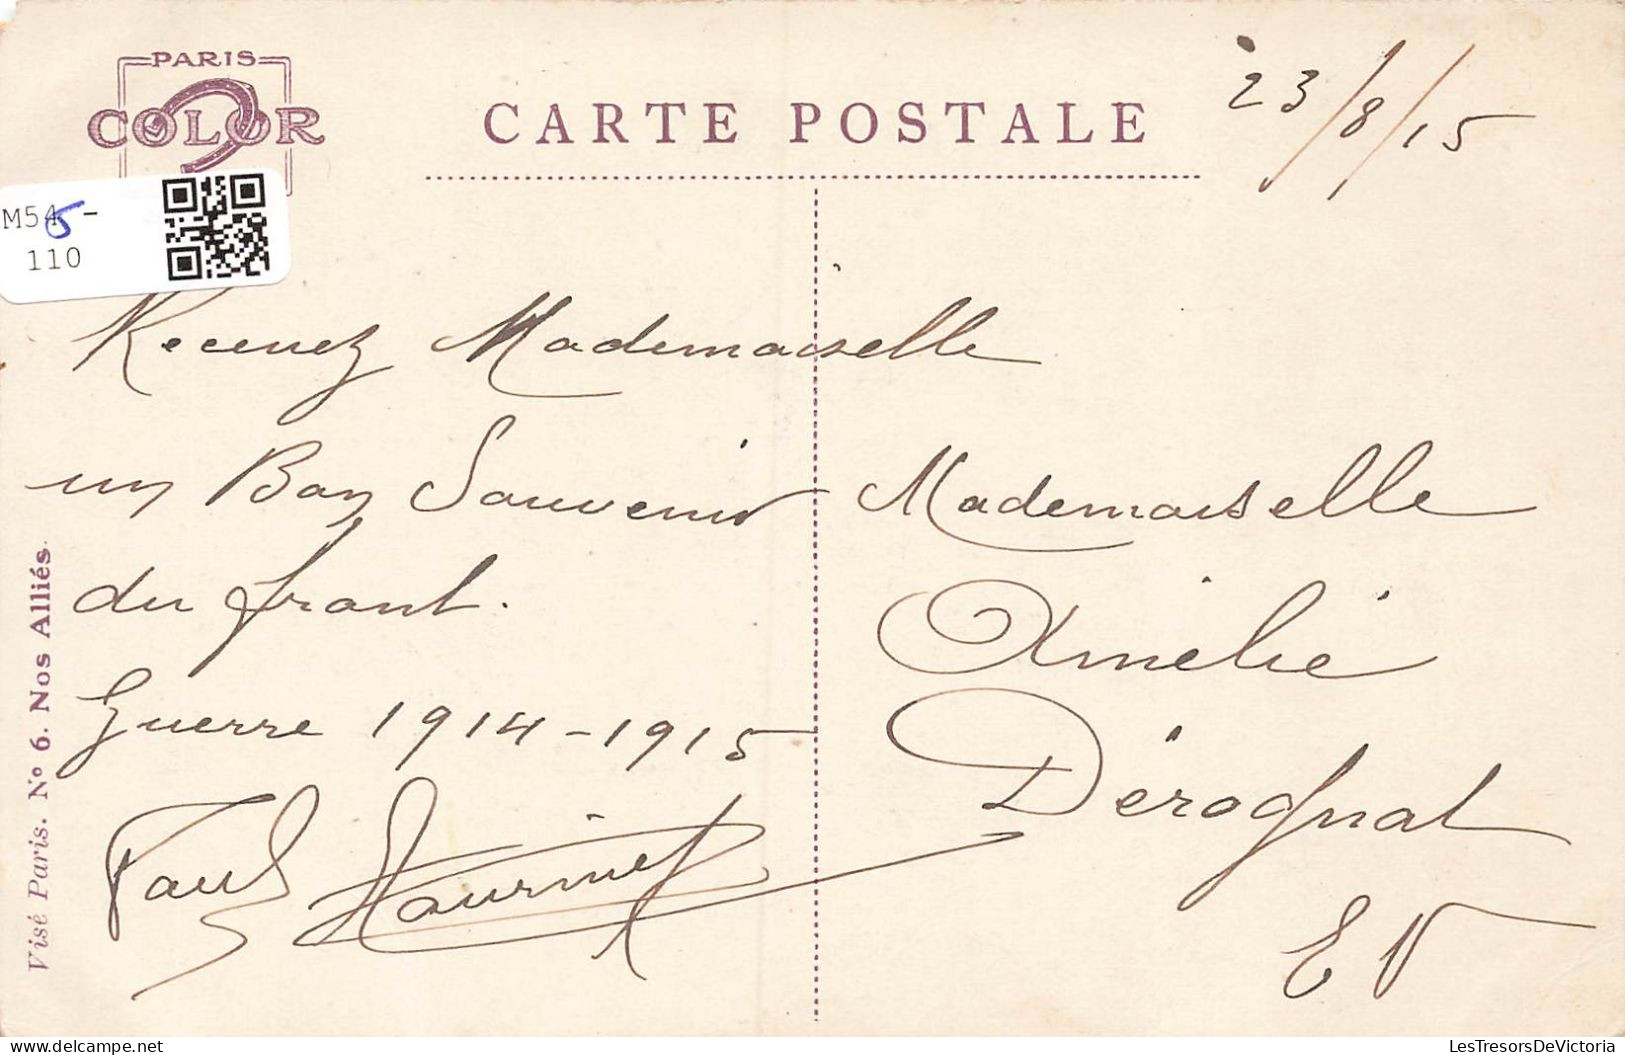 PARIS
COLOR
CARTE POSTALE
23/8/15
M545-
110
Recevez Mademoiselle
un Bon Souvenir
du front.
Guerre 1914-1915
Paul
Mademoiselle
Amélie
Dérognat
EV
Visé Paris. No 6. Nos Alliés.
LesTresorsDeVictoria